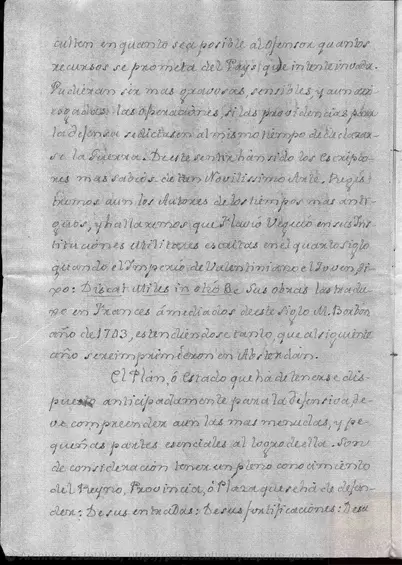 culten en quanto sea posible al Ofensor quantos
recursos se prometa del Pays, que intente invadir.
Pudieran ser mas gravosas, sensibles, y aun arri-
esgadas las operaciones, si las providencias para
la defensa se dictasen al mismo tiempo de declarar-
se la Guerra. De este sentir hán sido los Escripto-
res mas sabios de tan Novilissimo Arte. Regis-
tremos aun los Autores de los tiempos mas anti-
guos, y hallaremos que Flavio Vegecio en sus Ins-
tituciónes Militares escritas en el quarto siglo
quando el Imperio de Valentiniano el Joven, di-
xo: De sus obras las tradu-
xo en Frances á mediados de este Siglo M. Bordon
año de 1743, estendiendose tanto, que al siguiente
año se reimprimieron en Absterdán.
El Plán, ó Estado que há de tenerse dis-
puesto anticipadamente para la defensiva de-
ve comprender aun las mas menudas, y pe-
queñas partes esenciales al logro de ella. Son
de consideración tener un pleno conocimiento
del Reyno, Provincia, ó Plaza que se há de defen-
der: De sus entradas: De sus fortificaciones: De su